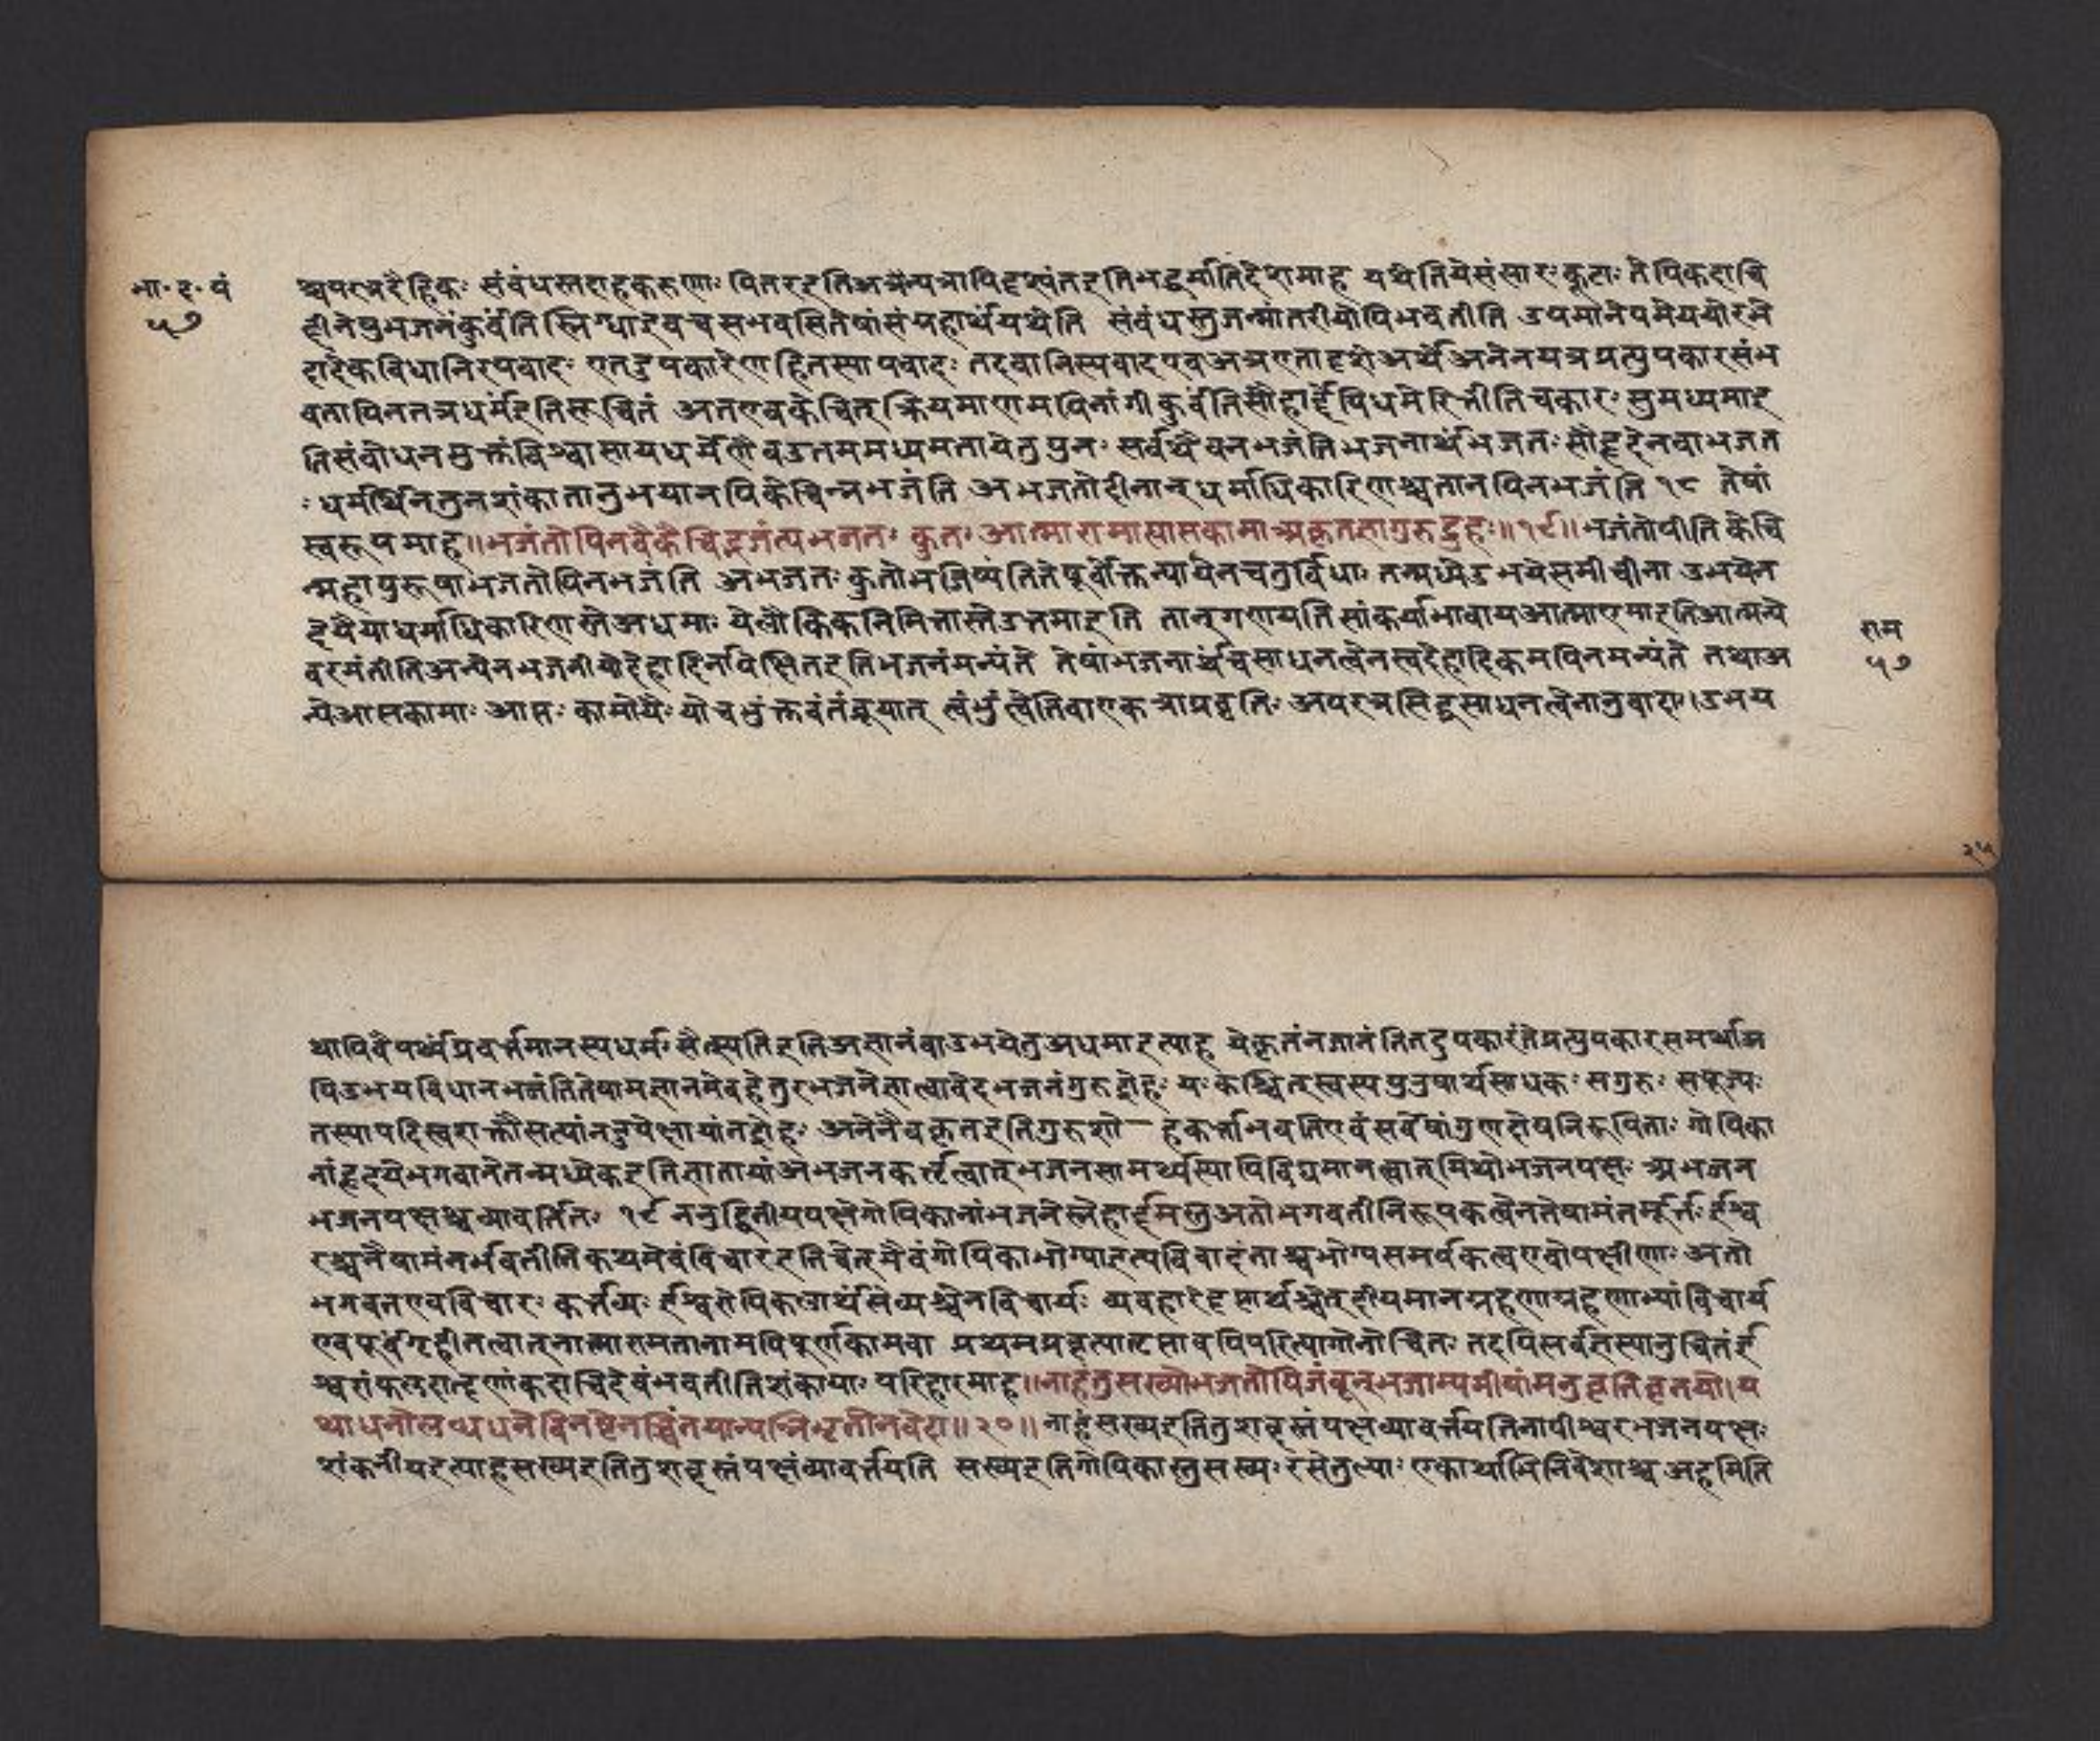 भा॰ द॰ पं
५७
श्चपरत्रदैहिकः संबंधस्तदाहकरुणाः पितरइतिअत्रैन्यत्रापिदृश्यंतइतिभद्धर्मातिदेशमाह यथेतियेसंसारःकूटाः तेपिकदाचि
द्दीनेषुभजनंकुर्वंतिस्निग्धाइवचसभवसितेषांसंग्रहार्थंयथेति संबंधस्तुजन्मांतरीयोपिभवतीति उपमानोपमेययोरभे
दादेकविधानिरपवादः एतदुपकारेणहितस्यापवादः तदवानिरपवादएवअत्रएतादृशेअर्थेअनेनयत्रप्रत्युपकारसंभ
वतापिनतत्रधर्मइतिसूचितं अतएवकेचित्क्रियमाणमपिनांगीकुर्वंतिसौहार्द्देपिधर्मेस्तितीतिचकारः सुमध्यमाइ
तिसंबोधनमुक्तंविश्वासायधर्मेणैवउत्तममध्यमतायेतुपुनः सर्वथैवनभजंतिभजनार्थंभजतः सौहृदेनवाभजत
ःधर्मार्थिनेतुनशंकातानुभयानपिकेचिन्नभजंति अभजतोदीनान्धर्माधिकारिणश्चतानपिनभजंति १८ तेषां
स्वरूपमाह॥भजंतोपिनवैकेचिद्भजंत्यभजतः कुतः आत्मारामाह्याप्तकामाअकृतज्ञागुरुद्रुहः॥१९॥भजंतोपीतिकेचि
न्महापुरूषाभजतोपिनभजंति अभजतःकुतोभजिष्यंतितेपूर्वोक्तन्यायेनचतुर्विधाः तन्मध्येउभयेसमीचीना उभयेन
हृयेयाधर्माधिकारिणस्तेअधमाः येलौकिकनिमित्तास्तेउत्तमाइति तान्गणयतिसांकर्याभावायआत्मारामाइतिआत्मन्ये
वरमंतीतिअन्येनभजनीयोदेहादिर्नापेक्षितइतिभजनंमन्यंते तेषांभजनार्थंचसाधनत्वेनस्वदेहादिकमपिनमन्यंते तथाअ
न्येआप्तकामाः आप्तः कामोयैः योचभुंक्तवंतंब्रूयात् त्वंभुंक्ष्वेतिवाएकत्राप्रवृत्तिः अपरत्रसिद्धसाधनत्वेनानुवादः।उभय
राम
५७
२१५
थापिवैयर्थ्यंप्रवर्त्तमानस्यधर्मः सेत्स्यतिइतिअज्ञानंवाउभयेतुअधमाइत्याह येकृतंनजानंतितदुपकारंतेप्रत्युपकारसमर्थाअ
पिउभयविधानभजंतितेषामज्ञानमेवहेतुरभजनेज्ञात्वाचेदभजनंगुरुद्रोहः यःकश्चित्स्वस्यपुरुषार्थसाधकः सगुरुः सपूज्यः
तस्यापदिस्वशक्तौसत्यांनउपेक्षायांतद्रोहः अनेनैवकृतइतिगुरुद्रो हकर्त्ताभवतिएवंसर्वेषांगुणदोषनिरूपिताः गोपिका
नांहृदयेभगवानेतन्मध्येकइतिज्ञातायांअभजनकर्तृत्वात्भजनसामर्थ्यस्यापिविद्यमानत्वात्मिथोभजनपक्षः अभजन
भजनपक्षश्चव्यावर्तितः १९ ननुद्वितीयपक्षेगोपिकानांभजनेस्नेहार्द्रमस्तुअतोभगवतीनिरूपकत्वेनतेषामंतर्मूर्त्तः ईश्व
रश्चनैषामंतर्भवतीतिकथमेवंविचारइतिचेत्मैवंगोपिकाभोग्याइत्यविवादंताश्चभोग्यसमर्पकत्वएवोपक्षीणाः अतो
भगवतएवविचारः कर्त्तव्यः ईश्वरोपिकृतार्थंसेव्यश्चेन्नविचार्यः व्यवहारेदृष्टार्थश्चेत्दीयमानग्रहणाग्रहणाभ्यांविचार्य
एवपूर्वंगृहीतत्वात्नात्मारामतानामपिपूर्णकामवा प्रथमप्रवृत्त्यातृप्तावपिपरित्यागोनोचितः तदपिसर्वज्ञस्यानुचितंई
श्वरांकलशत्दृणांकदाचिदेवंभवतीतिशंकायाः परिहारमाह॥नाहंतुसख्योभजतोपिजंतून्भजाम्यमीषामनुवृत्तिवृत्तये।य
थाधनोलब्धधनेविनष्टेतच्चिंतयान्यन्निभृतोनवेद॥२०॥नाहंसख्यइतितुशब्दस्तंपक्षव्यावर्त्तयतिनापीश्वरभजनपक्षः
शंकनीयइत्याहसख्यइतितुशब्दस्तंपक्षंव्यावर्त्तयति सख्यइतिगोपिकास्तुसख्यः रसेतुल्याः एकार्थाभिनिवेशाश्च अहमिति